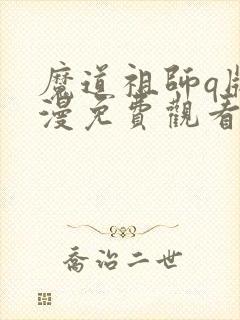 魔道祖師q版
漫免費觀看
喬治二世